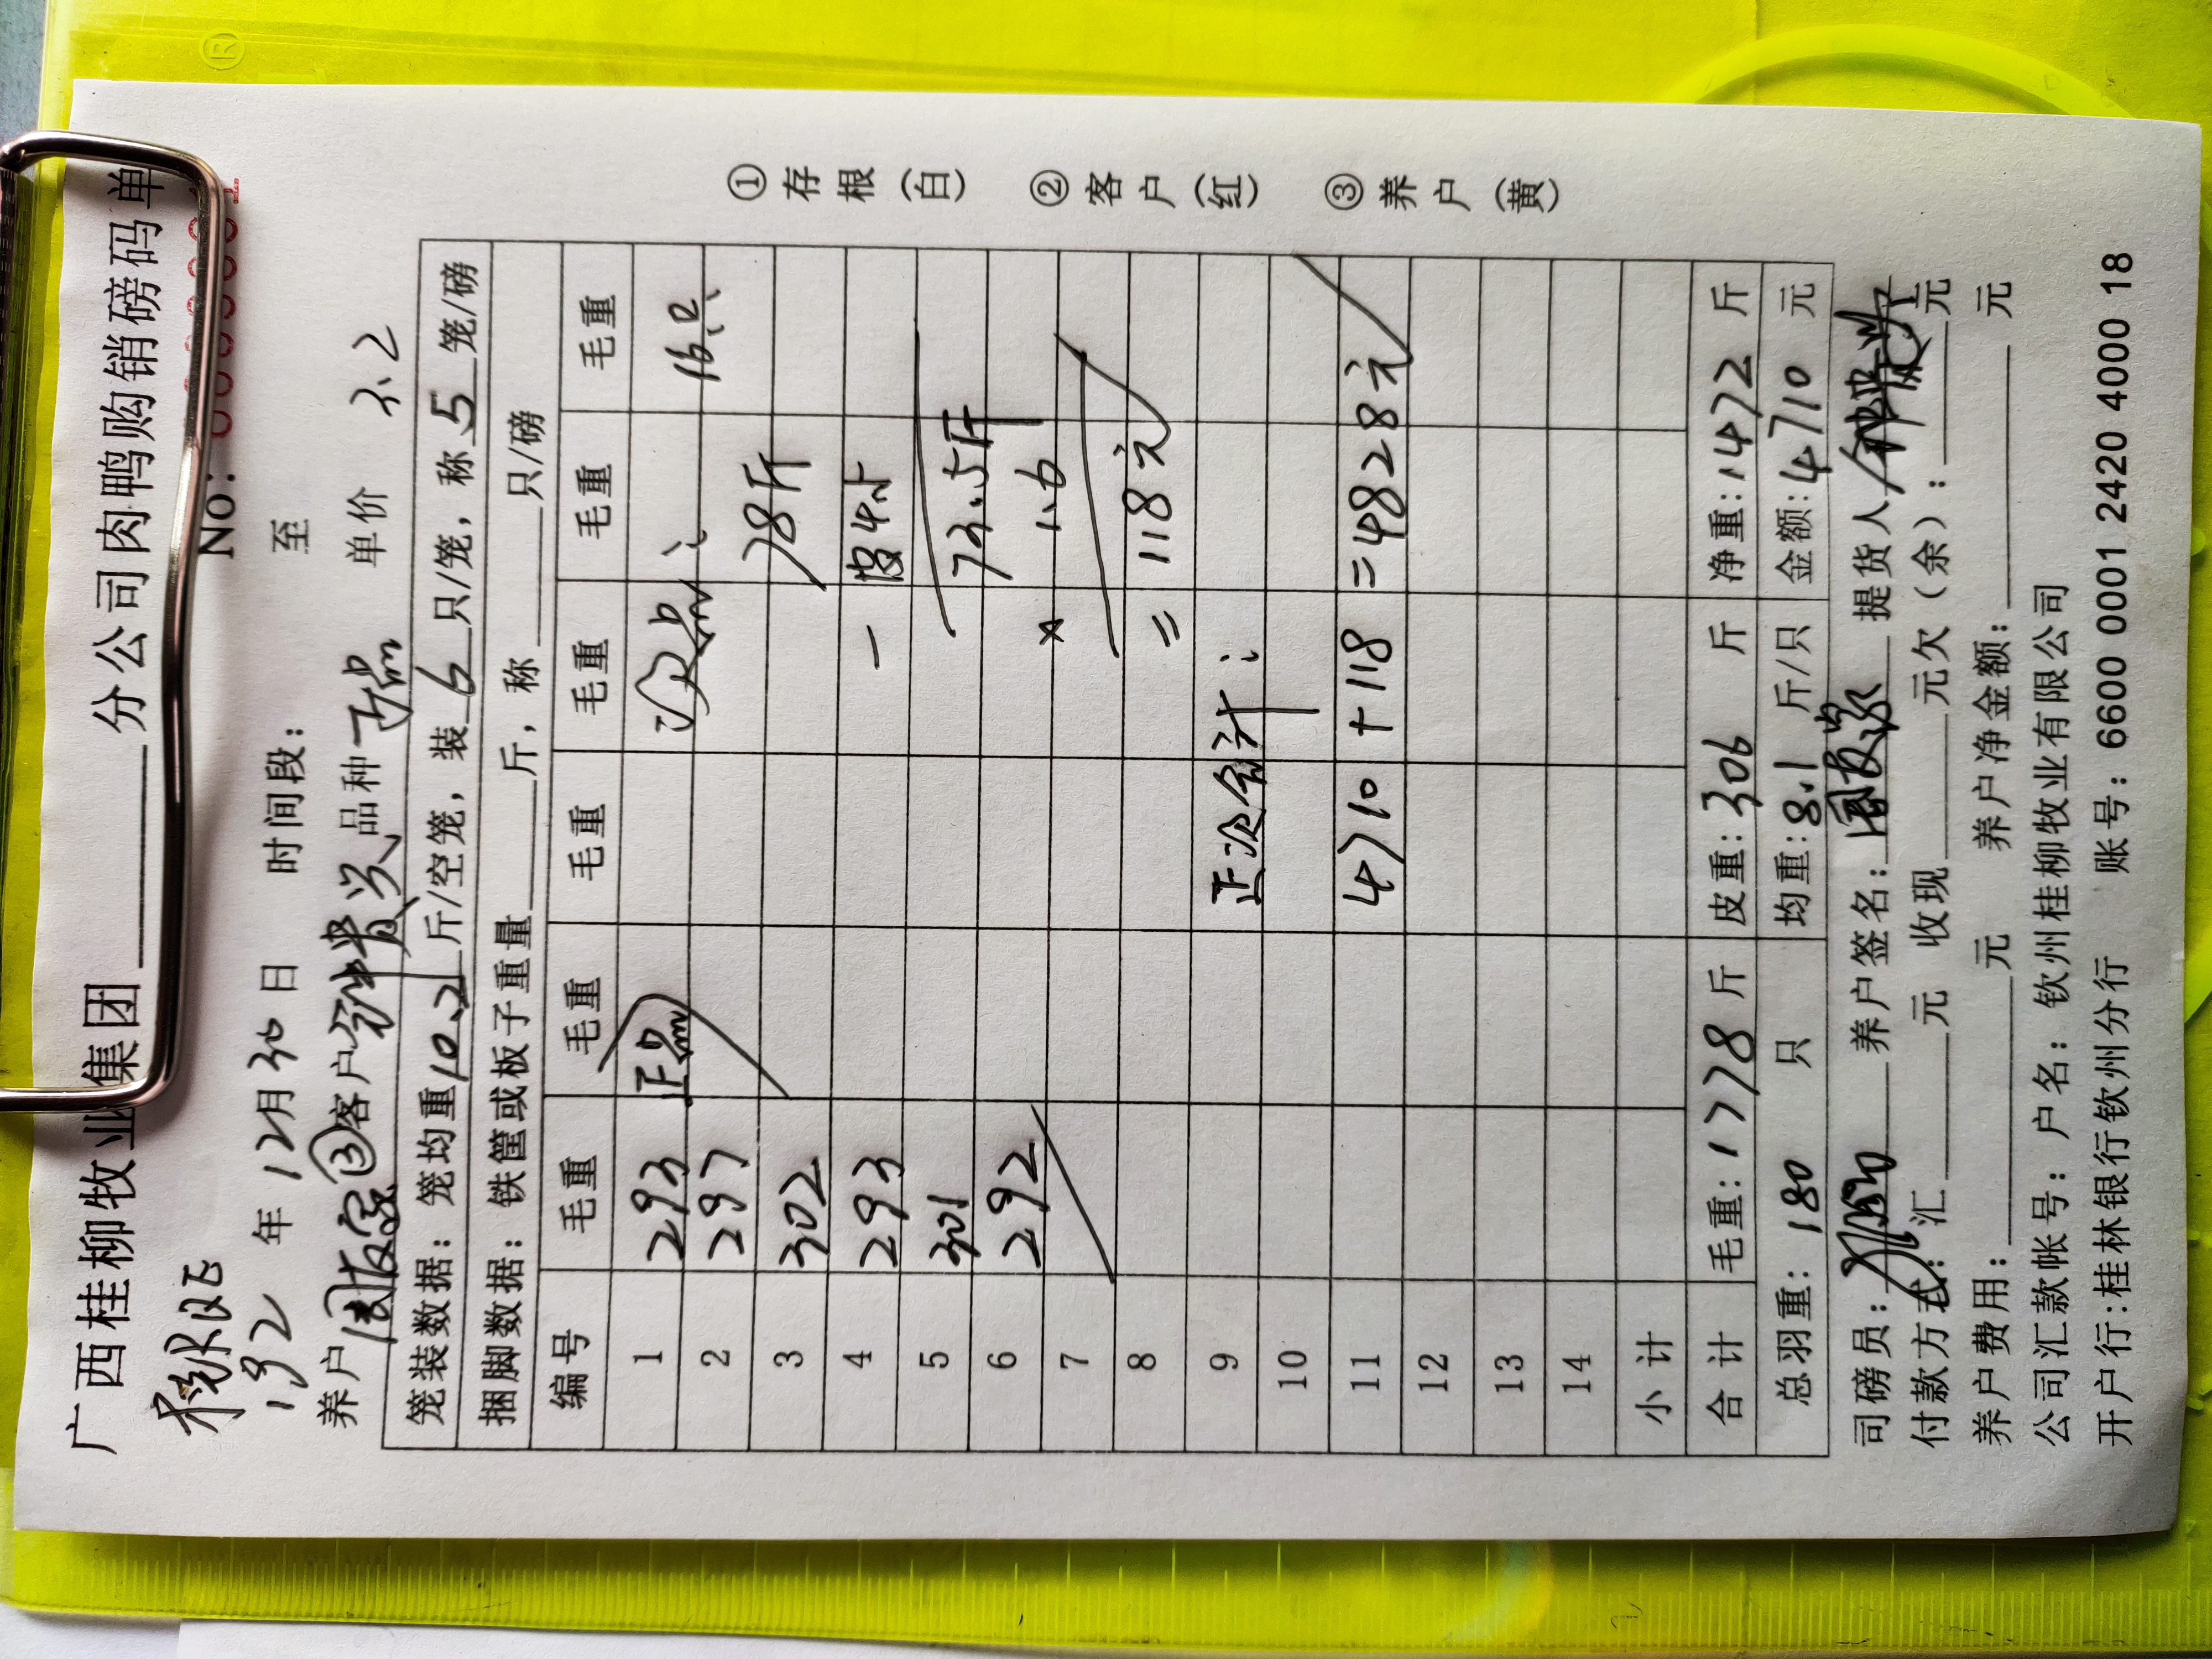 广西桂柳牧业集团 分公司肉鸭购销磅码单
No:
192 年 12月30日 时间段: 至
养户 ③客户 品种 正品 单价 3.2
笼装数据: 笼均重10.2斤/空笼, 装6只/笼, 称5笼/磅
捆脚数据: 铁筐或板子重量 斤, 称 只/磅
编号 毛重 毛重 毛重 毛重 毛重 毛重
1 293 正品 次品:
2 297 16只
3 302 78斤
4 293 - 4.5
5 301 73.5斤
6 292 × 1.6
7
8 = 118元
9 正次合计:
10
11 4710+118 =4828元
12
13
14
小计
合计 毛重: 1778斤 皮重: 306 斤 净重: 1472 斤
总羽重: 180 只 均重: 8.1 斤/只 金额: 4710 元
司磅员: 养户签名: 提货人
付款方式: 汇 元 收现 元欠(余): 元
养户费用: 元 养户净金额: 元
公司汇款帐号: 户名: 钦州桂柳牧业有限公司
开户行:桂林银行钦州分行 账号: 6600 0001 2420 4000 18
①存根(白) ②客户(红) ③养户(黄)